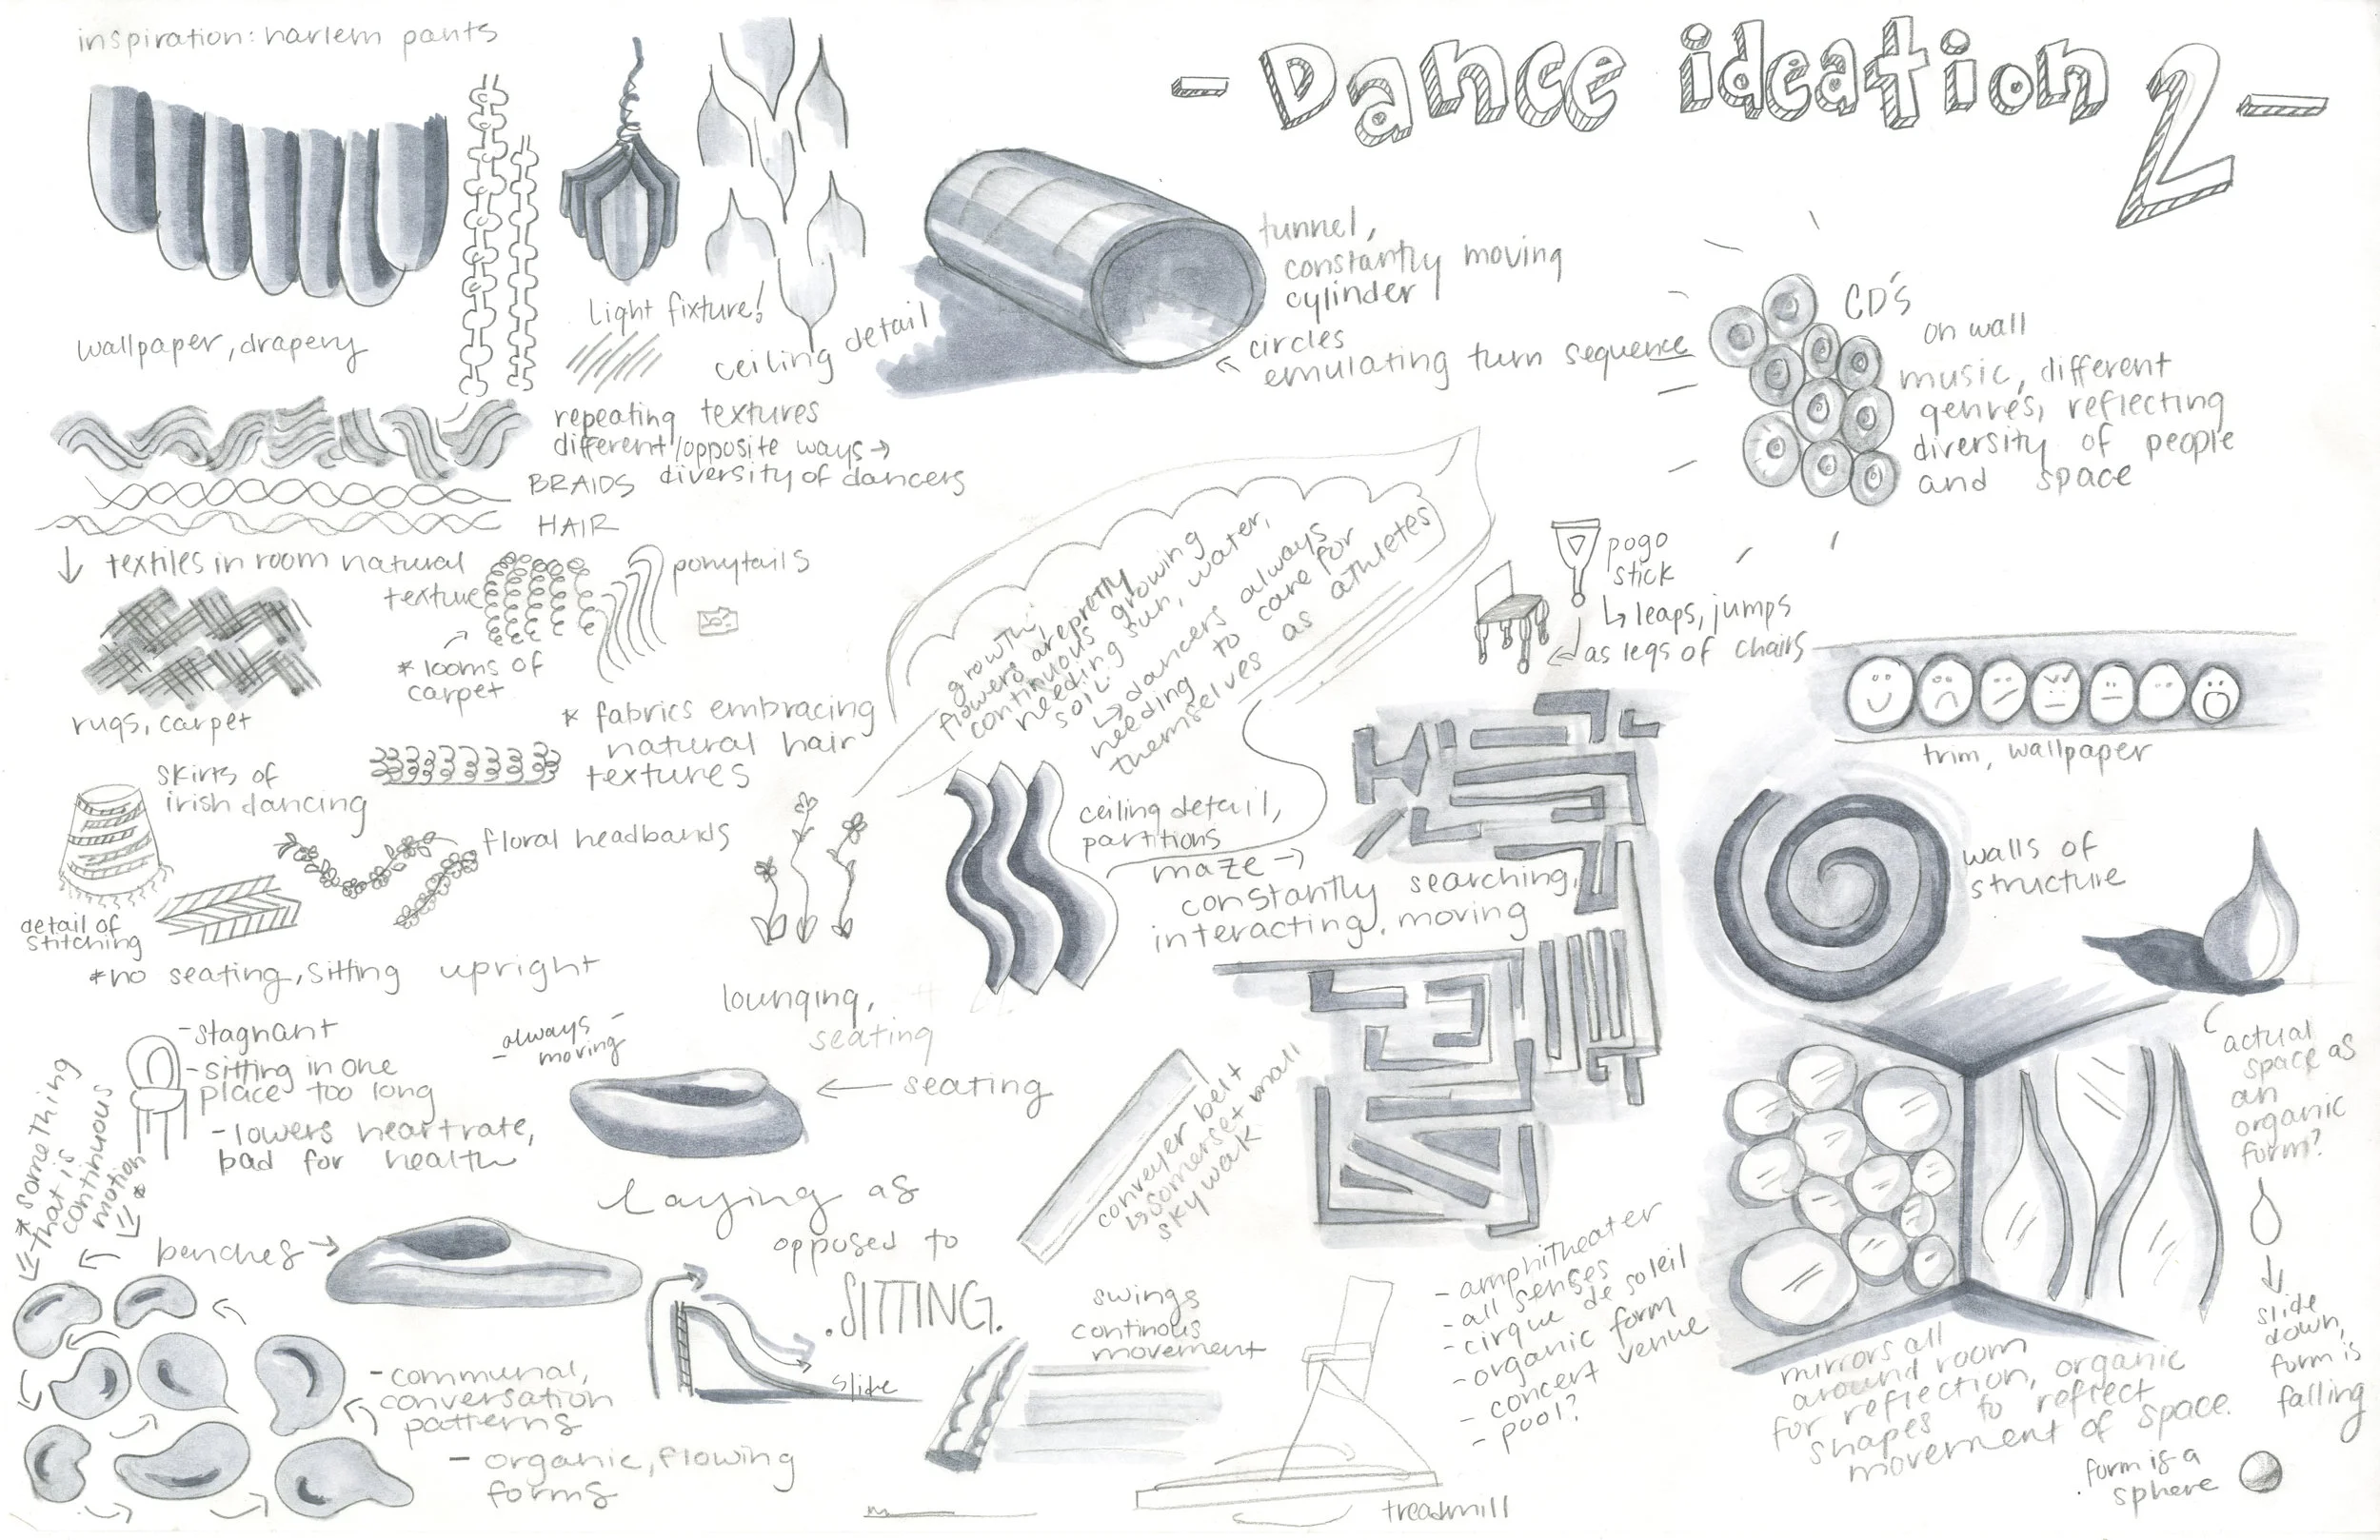 - Dance ideation 2 -
inspiration: harlem pants
wallpaper, drapery
light fixture!
ceiling detail
tunnel,
constantly moving
cylinder
circles
emulating turn sequence
CD's
on wall
music, different
genres, reflecting
diversity of people
and space
repeating textures
different/opposite ways →
diversity of dancers
BRAIDS
HAIR
↓ textiles in room natural
texture
ponytails
* looms of
carpet
rugs, carpet
* fabrics embracing
natural hair
textures
skirts of
irish dancing
floral headbands
detail of
stitching
growth,
flowers are pretty
continuous growing
needing sun, water,
soil.
↳ dancers always
needing to care for
themselves as athletes
pogo
stick
↳ leaps, jumps
as legs of chairs
trim, wallpaper
ceiling detail,
partitions
maze →
constantly searching,
interacting, moving
walls of
structure
*no seating, sitting upright
- stagnant
- sitting in one
place too long
- lowers heartrate,
bad for health
* something
that is
continuous
motion *
- always -
- moving
lounging,
seating
← seating
laying as
opposed to
.SITTING.
benches →
slide
- communal,
conversation
patterns
- organic, flowing
forms
conveyer belt
↳ somerset mall
skywalk
swings
continous
movement
treadmill
- amphitheater
- all senses
- cirque de soleil
- organic form
- concert venue
- pool?
mirrors all
around room
for reflection, organic
shapes to reflect
movement of space.
actual
space as
an
organic
form?
slide
down,
form is
falling
. form is a
sphere